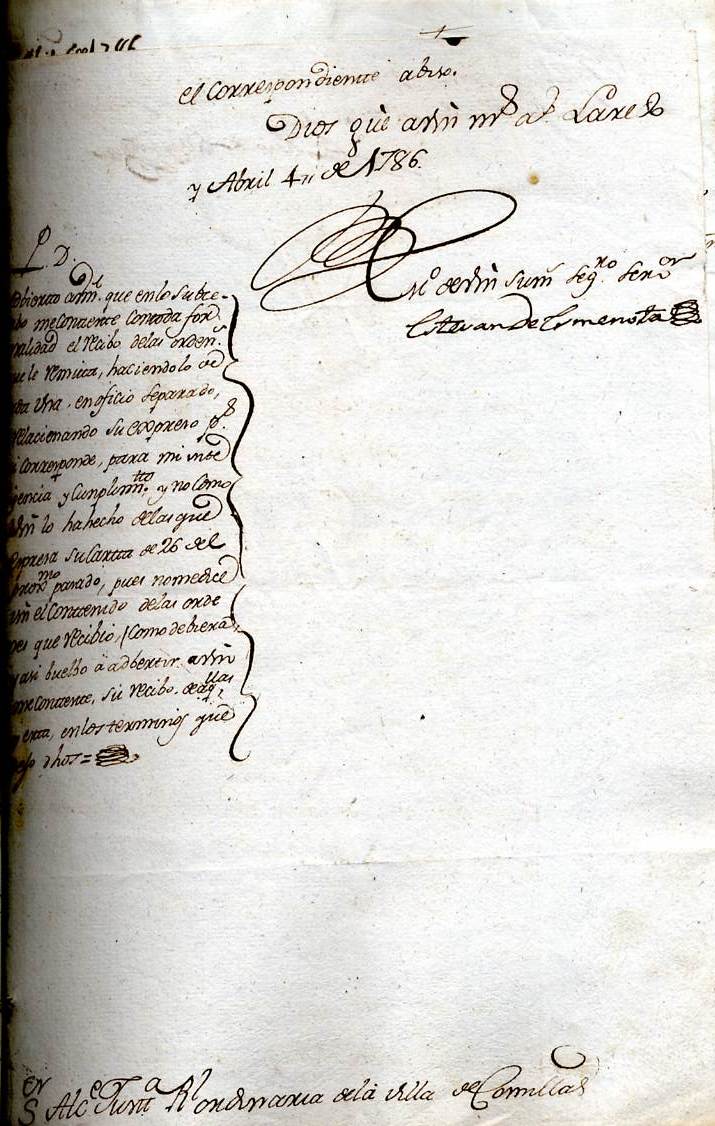 el correspondiente abiso.
Dios güe a Vm m.s a.s Laredo
y Abril 4,, de 1786.
Sumo seg.ro serv.or
Estevan de Esmenota
P. D.
adbierto a Vm. que en lo Subce-
sibo me conteste con toda for
malidad el recibo de las orden.s
que le remita, haciendolo de
cada Una, en oficio separado,
relacionando su expreso p.r
si corresponde, para mi inte
ligencia y Cumplim.tto y no como
Vm lo ha hecho de las que
expresa su Cartta de 26 del
prox.mo pasado, pues no me dice
Vm el Conttenido de las orde
nes que recibio, (como debiera,
y asi buelbo â adbertir a Vm
me conteste, su recibo de aq.llas
y esta, en los terminos que
dhos =
S.or Alc.e Junt.a R.l ordinaria de la Villa de Comillas